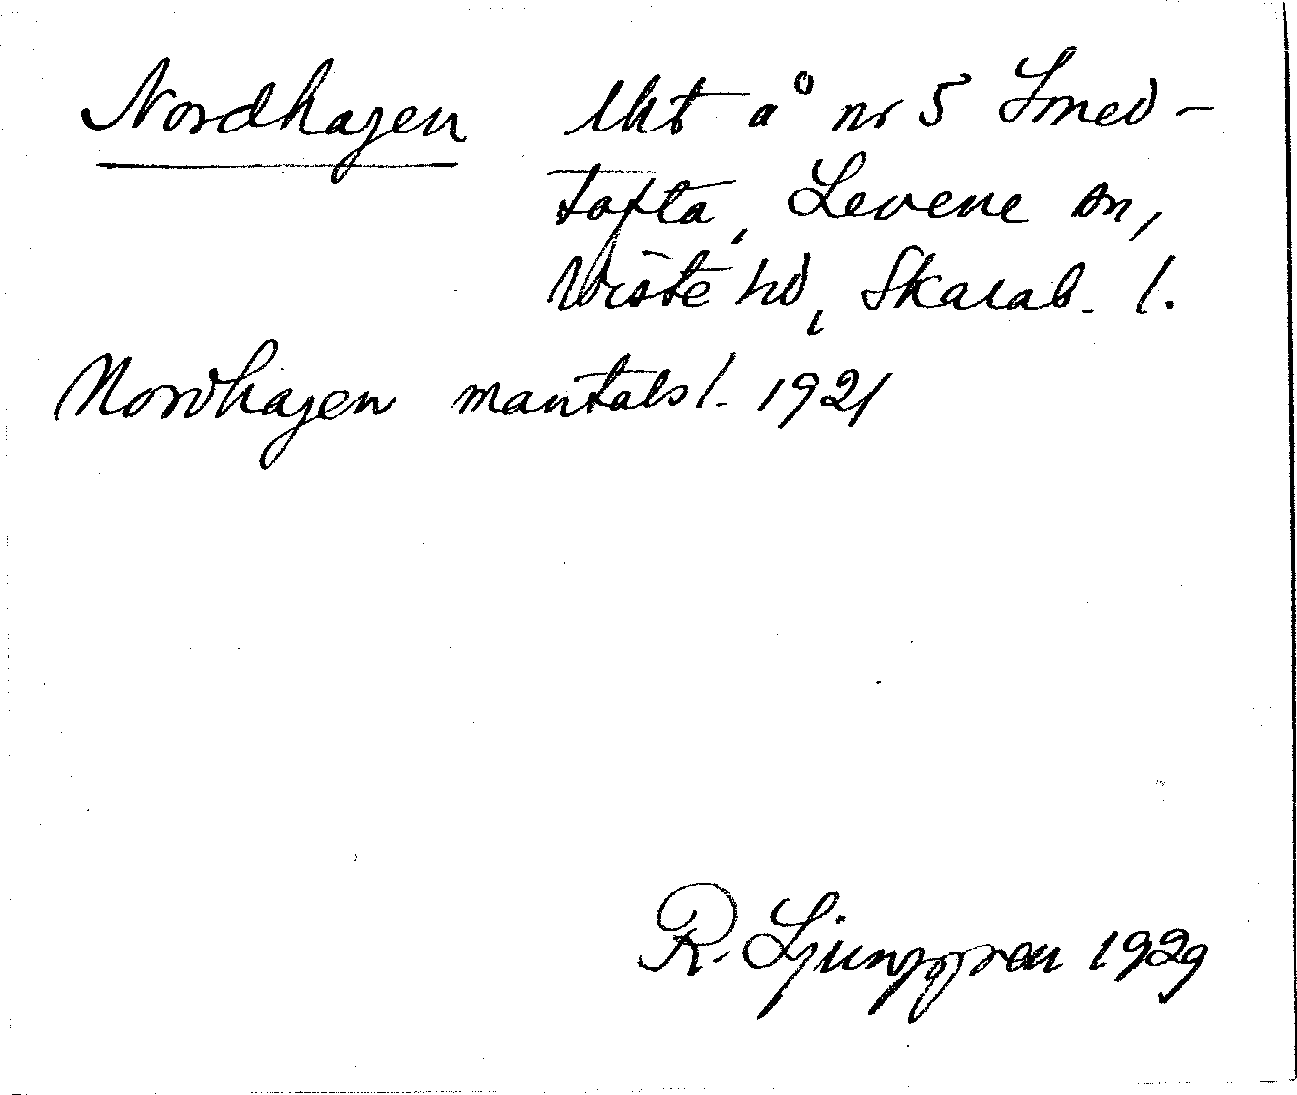 Nordhagen lht å nr 5 Smed-
tofta, Levene sn,
Viste hd, Skarab. l.
Nordhagen mantalsl. 1921
R. Ljunggren 1929